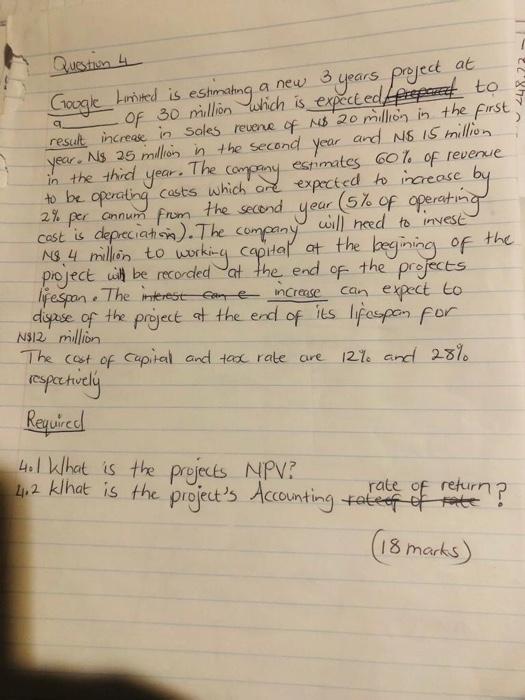 Question 4
Google Limited is estimating a new 3 years project at
a of 30 million which is expected prepared to
result increase in sales revenue of N$ 20 million in the first
year. N$ 25 million in the second year and N$ 15 million
in the third year. The company estimates 60% of revenue
to be operating costs which are expected to increase by
2% per annum from the second year (5% of operating
cost is depreciation). The company will need to invest
N$ 4 million to working capital at the begining of the
project will be recorded at the end of the projects
lifespan. The interest can e increase can expect to
dispose of the project at the end of its lifespan for
N$12 million
The cost of capital and tax rate are 12% and 28%
respectively
Required
4.1 What is the projects NPV?
4.2 What is the project's Accounting rateof of rate rate of return?
(18 marks)